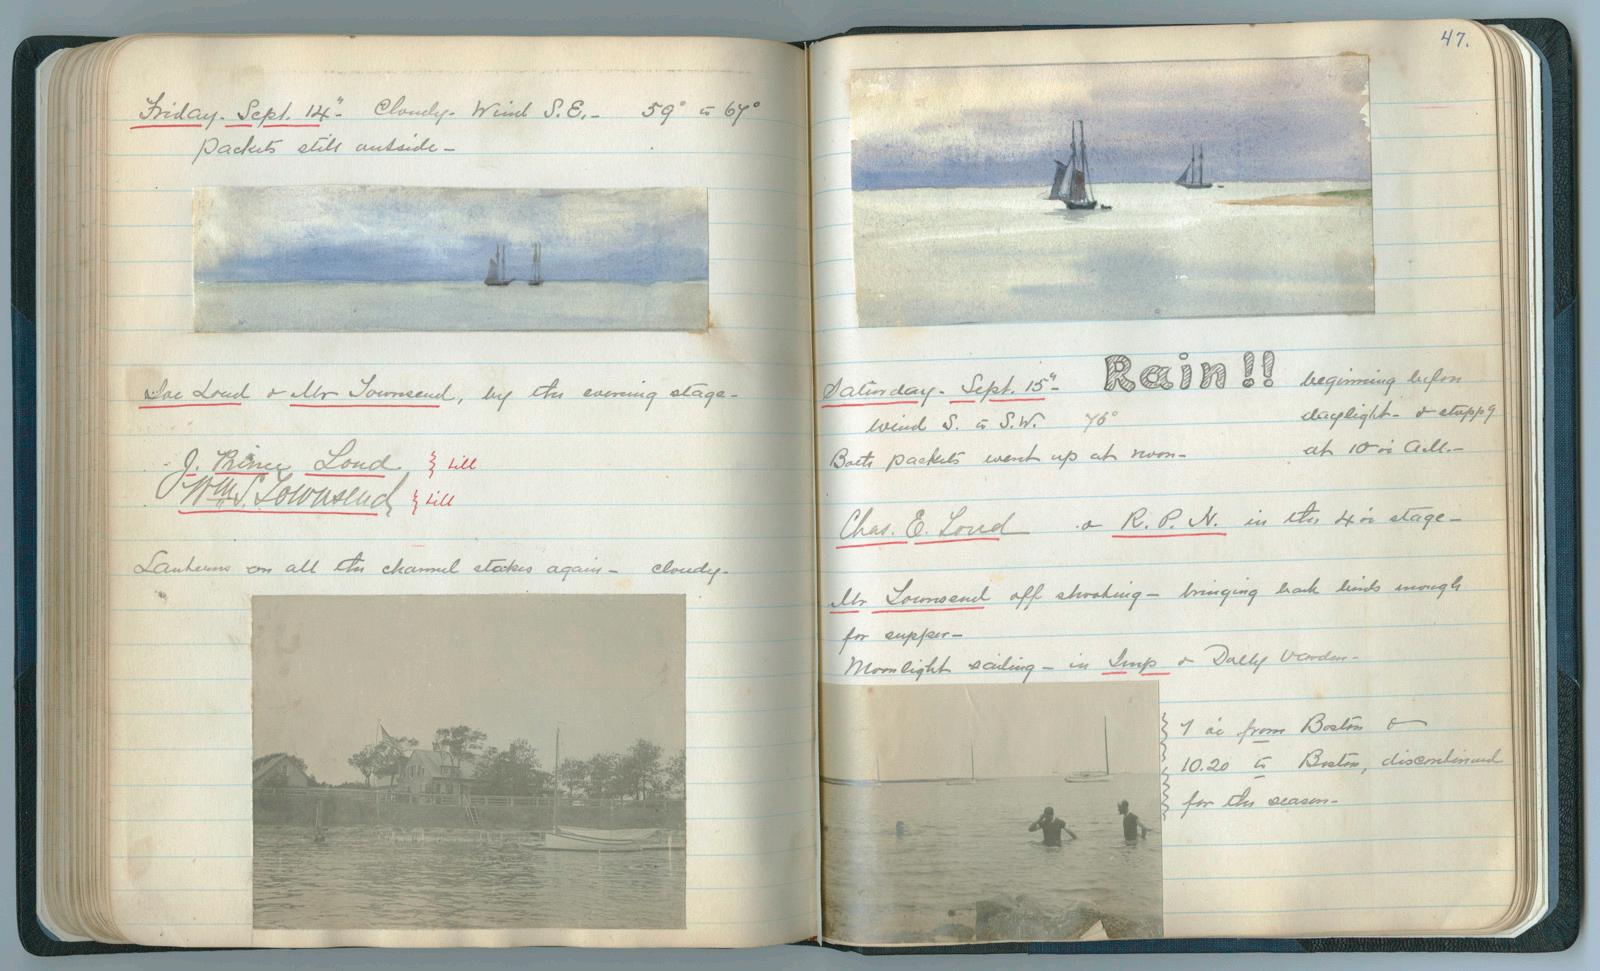 Friday. Sept. 14" - Cloudy - Wind S.E. - 59° to 67°
Packets still outside -
Joe Loud & Mr Townsend, by the evening stage -
J. Prince Loud } till
Wm S. Townsend } till
Lanterns on all the channel stakes again - cloudy -
47.
Saturday - Sept. 15" - Rain!! beginning before
daylight - & stopp'g
at 10 A.M. -
Wind S. to S.W. 76°
Both packets went up at noon -
Chas. E. Loud & R. P. N. in the 4 stage -
Mr Townsend off shooting - bringing back birds enough
for supper -
Moonlight sailing - in Imp & Dolly Varden -
7 from Boston &
10.20 to Boston, discontinued
for the season -